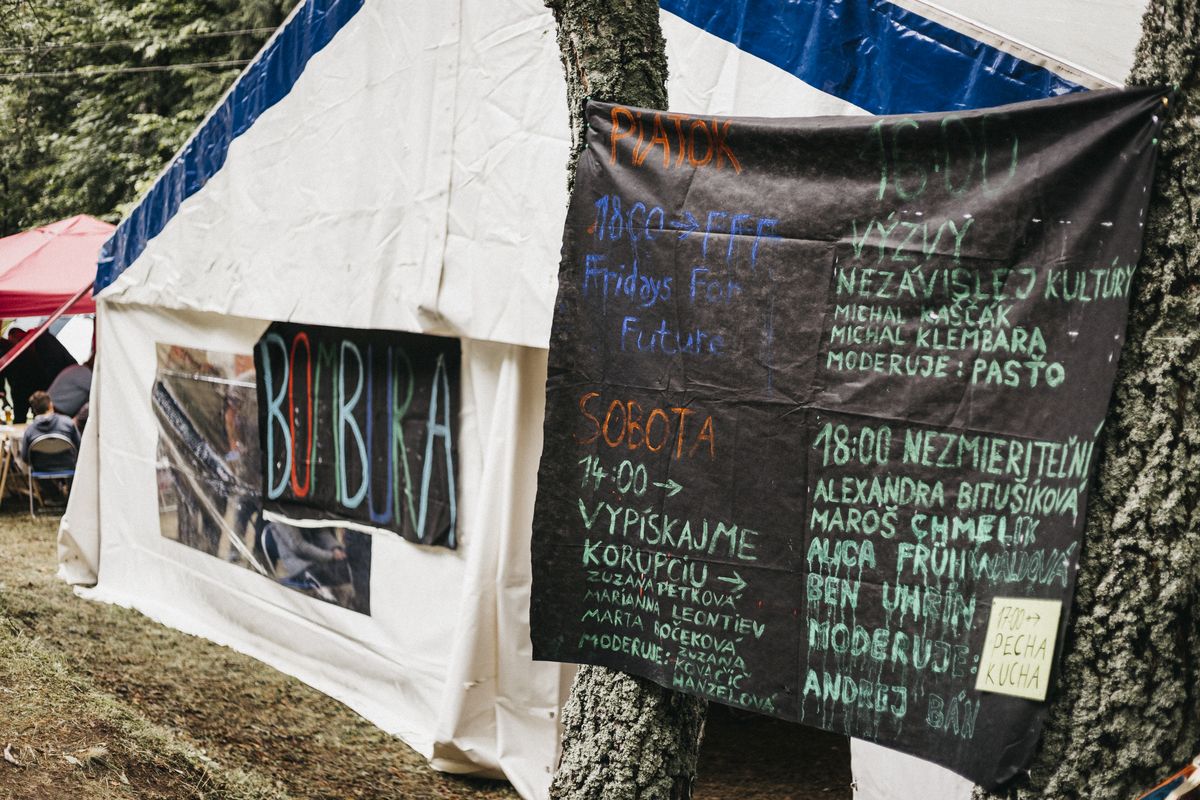 BOMBURA
PIATOK
18:00 → FFF
Fridays For
Future
SOBOTA
14:00 →
VYPÍSKAJME
KORUPCIU →
ZUZANA PETKOVÁ
MARIANNA LEONTIEV
MARTA BOČEKOVÁ
MODERUJE: ZUZANA
KOVAČIČ
HANZELOVÁ
16:00
VÝZVY
NEZÁVISLEJ KULTÚRY
MICHAL KAŠČÁK
MICHAL KLEMBARA
MODERUJE: PASŤO
18:00 NEZMIERITEĽNÍ
ALEXANDRA BITUŠÍKOVÁ
MAROŠ CHMELIK
ALICA FRÜHWALDOVÁ
BEN UHRÍN
MODERUJE:
ANDREJ BÁN
17:00 →
PECHA
KUCHA